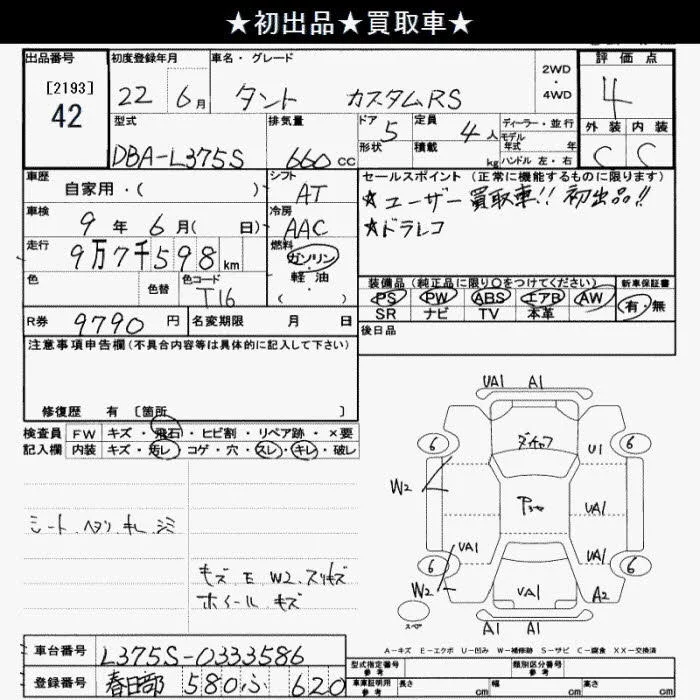 ★初出品★買取車★
出品番号 初度登録年月 車名・グレード 評価点
[2193]
42
22年 6月 タント カスタムRS 2WD 4WD 4
型式 排気量 ドア 5 定員 4人 ディーラー・並行 外装 内装
DBA-L375S 660cc 形状 積載 kg モデル年式 年 ハンドル 左・右 C C
車歴 シフト セールスポイント (正常に機能するものに限ります)
自家用・( ) AT ★ユーザー買取車!! 初出品!!
車検 9年 6月( 日) 冷房 AAC ★ドラレコ
走行 9万7千598km 燃料 ガソリン・軽油・( )
色 色替 色コード T16
装備品 (純正品に限り○をつけてください) 新車保証書
PS PW ABS エアB AW 有・無
SR ナビ TV 本革
R券 9790円 名変期限 月 日 後日品
注意事項申告欄 (不具合内容等は具体的に記入して下さい)
修復歴 有 [箇所 ]
検査員 FW キズ・飛石・ヒビ割・リペア跡・×要
記入欄 内装 キズ・汚レ・コゲ・穴・スレ・キレ・破レ
シート、ヘタリ、キレ、シミ
キズ、E W2、スリキズ
ホイール キズ
UA1 A1
6 ダキャフ U1 6
W2 Pシャ UA1
UA1 UA1
6 6
W2 UA1 A2
スペア
A1 A1
A-キズ E-エクボ U-凹み W-補修跡 S-サビ C-腐食 XX-交換済
車台番号 L375S-0333586
登録番号 春日部 580 ふ 620
型式指定番号 参考 類別区分番号 参考
車庫証明用 参考 長さ cm 幅 cm 高さ cm